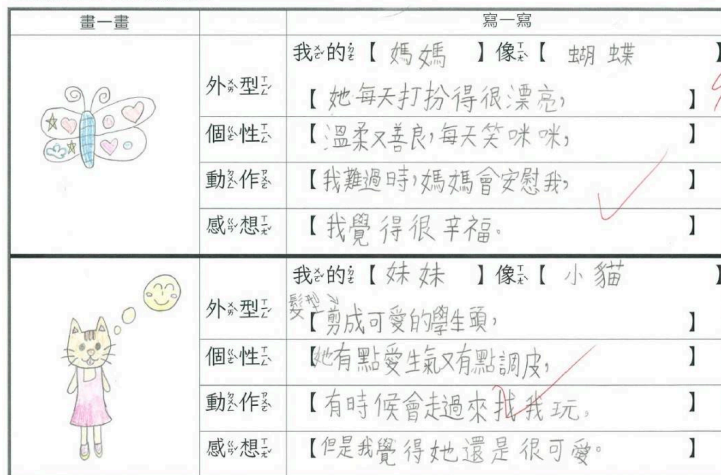 畫一畫 寫一寫
我的【媽媽】像【蝴蝶】
外型【她每天打扮得很漂亮，】
個性【溫柔又善良，每天笑咪咪，】
動作【我難過時，媽媽會安慰我，】
感想【我覺得很辛福。】
我的【妹妹】像【小貓】
髮型
外型【剪成可愛的學生頭，】
個性【她有點愛生氣又有點調皮，】
動作【有時候會走過來找我玩。】
感想【但是我覺得她還是很可愛。】